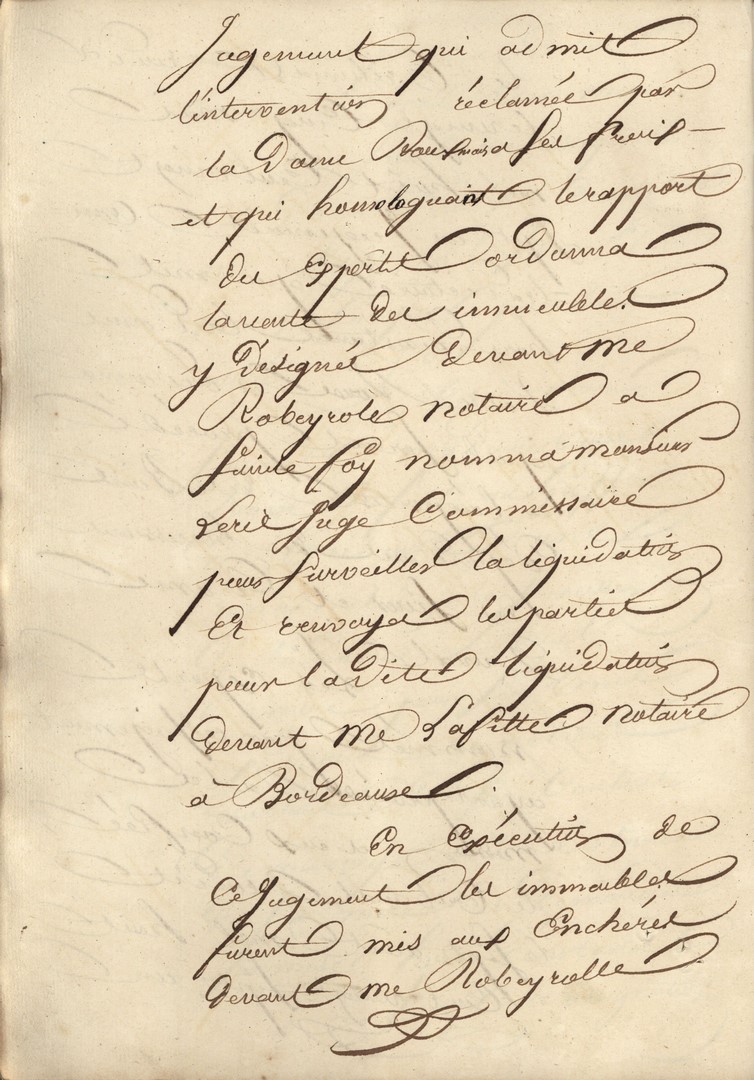 Jugement qui admit
l'intervention réclamée par
la Dame à ses frais
et qui homologuant le rapport
des Experts ordonna
la vente des immeubles
y désignés devant Me
Robeyrole notaire a
Sainte foy nomma monsieur
juge Commissaire
pour surveiller la liquidation
Et renvoya les parties
pour la dite liquidation
devant Me Lafitte notaire
à Bordeaux.
En Exécution de
Ce Jugement les immeubles
furent mis aux Enchéres
devant Me Robeyrolle